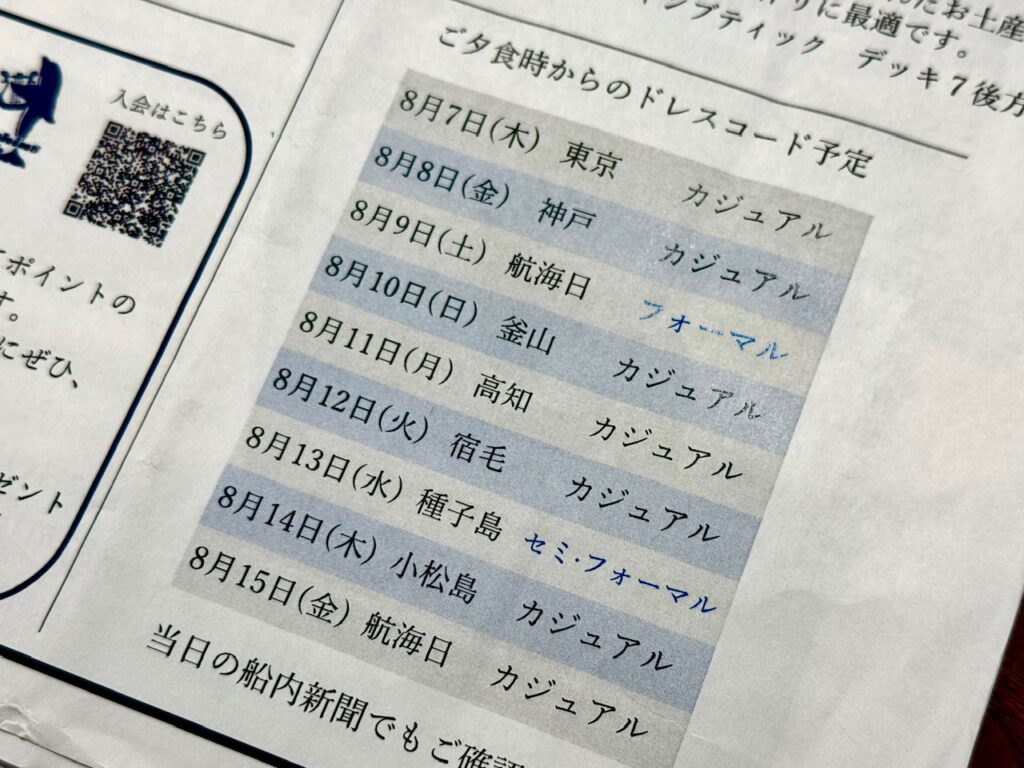 入会はこちら
ポイントの
す。
にぜひ、
ゼント
お土産
に最適です。
ブティック デッキ7後方
ご夕食時からのドレスコード予定
8月7日(木) 東京 カジュアル
8月8日(金) 神戸 カジュアル
8月9日(土) 航海日 フォーマル
8月10日(日) 釜山 カジュアル
8月11日(月) 高知 カジュアル
8月12日(火) 宿毛 カジュアル
8月13日(水) 種子島 セミ・フォーマル
8月14日(木) 小松島 カジュアル
8月15日(金) 航海日 カジュアル
当日の船内新聞でもご確認